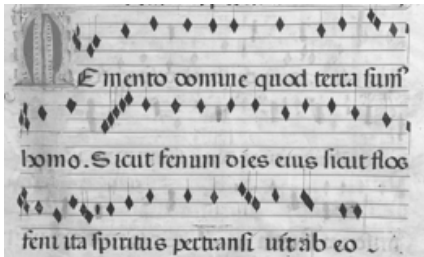 Memento domine quod terra sum⁹
homo. Sicut fenum dies eius sicut flos
feni ita spiritus pertransi uit ab eo.